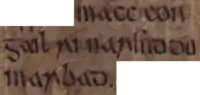 macc con
gail ni marlud du
marbad.